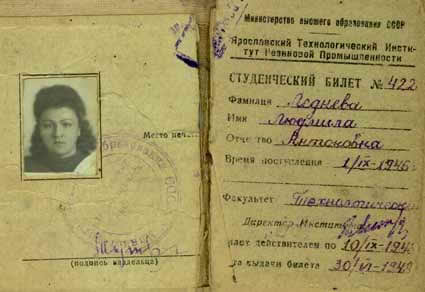 Место печати
(подпись владельца)
Министерство высшего образования СССР
Ярославский Технологический Инсти-
тут Резиновой Промышленности
СТУДЕНЧЕСКИЙ БИЛЕТ № 422
Фамилия
Имя Людмила
Отчество Антоновна
Время поступления 1/IX-1946
Факультет Технологический
Директор Института
билет действителен по 10/IX-194
дата выдачи билета 30/VI-194